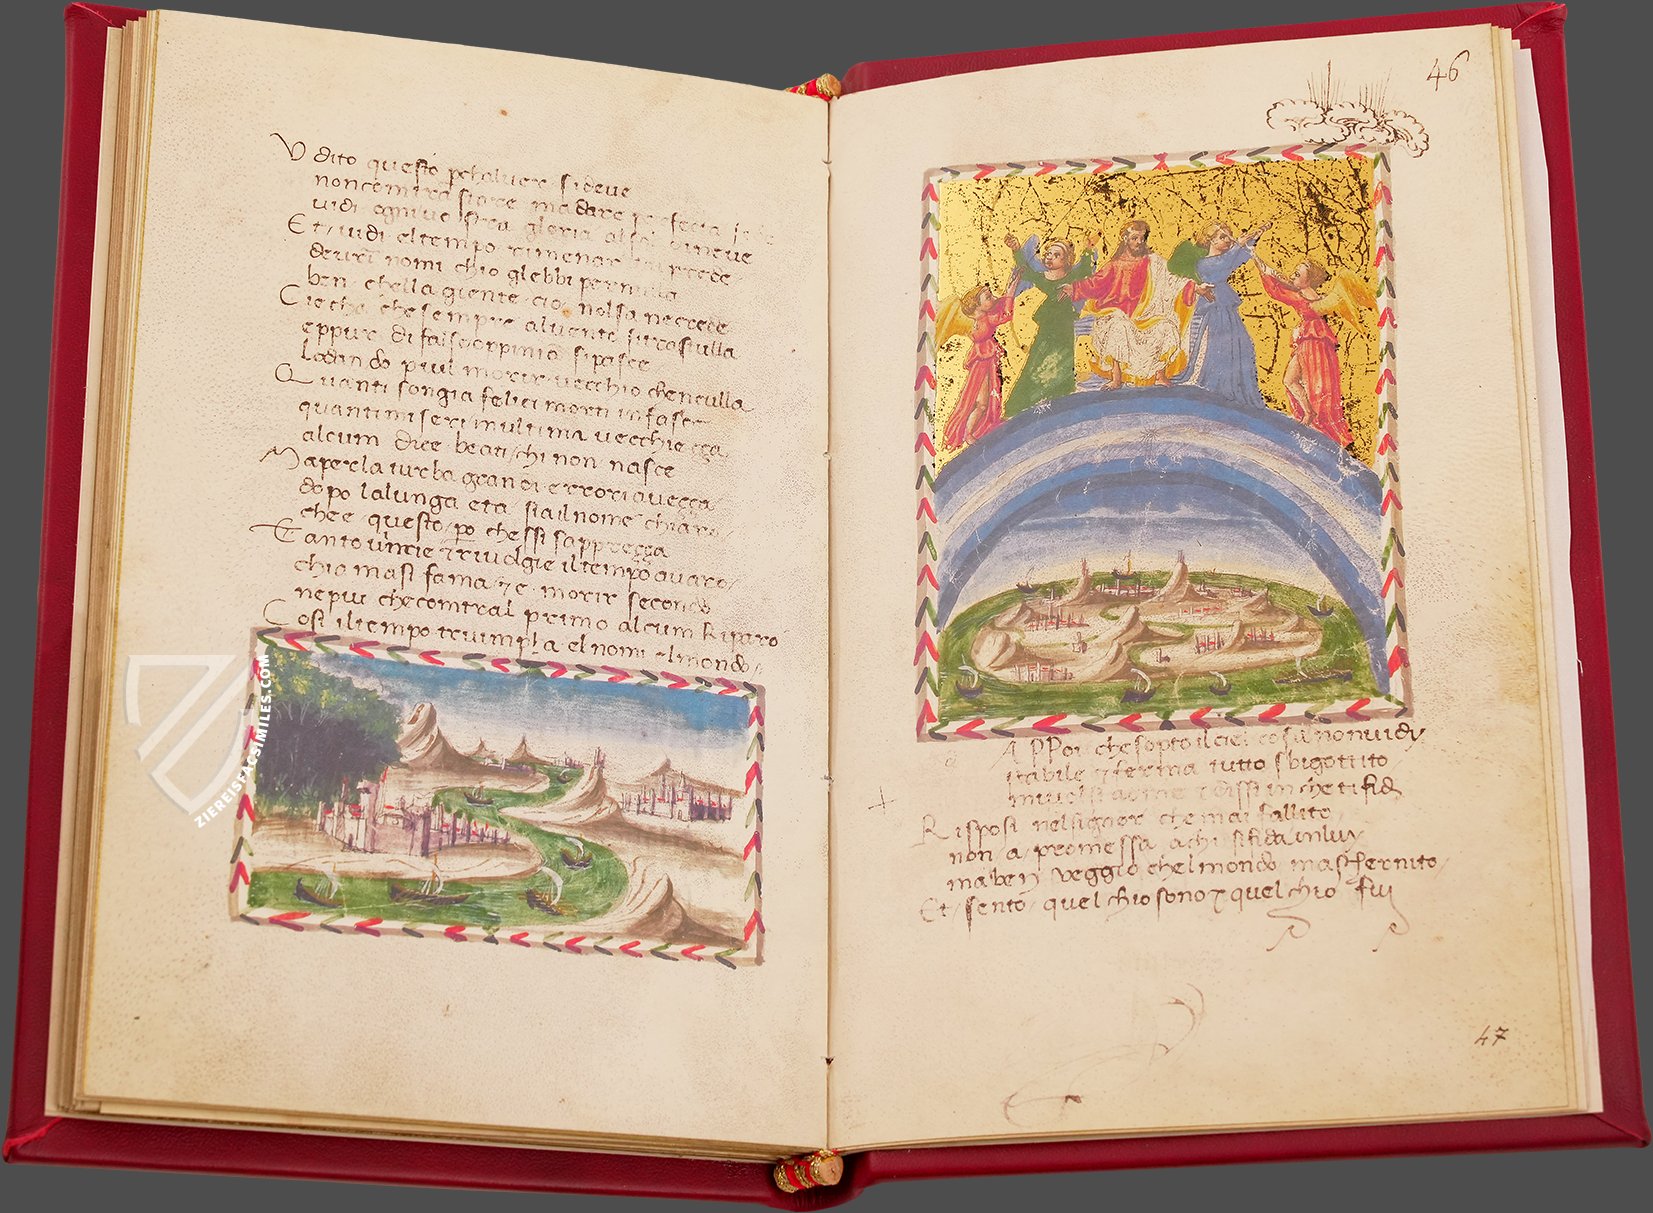 V dito questo pchaluer si deue
non con mira si ore mādare perfecta
vidi ogni vostra gloria al sol di neue
Et / uidi el tempo rimenar tal prede
de urī nomi chio glebbi per nulla
ben chella giente cio nolsa ne crede
C iecha che sempre aluento si trastulla
eppur di false oppiniō si pasce
lodando piul morir vecchio chenculla
Q uanti son gia felici morti in fasce
quanti miseri in ultima vecchieçça
alcum dice beati / chi non nasce
M a per la turba grandi errori aueçça
dopo la lunga eta sia il nome chiaro /
che e questo / po che ssi s appreçça
T anto uincie & riuolgie il tempo auaro /
chiamasi fama / & e morir secondo
ne piu che comtral primo alcum Riparo
C osi il tempo triumpha e l nomi el mondo /
ZIEREISFACSIMILES.COM
46
a
DA PPoi che sopto il ciel cosa non vidy
stabile & ferma tutto sbigottito
mi volsi a ome & dissi in che ti fidj
R isposi nel signor che mai fallito /
non a / promessa a chi si fida in luy
ma ben veggio chel mondo mascherníto /
Et / sento / quel chio sono & quel chio fuj
47